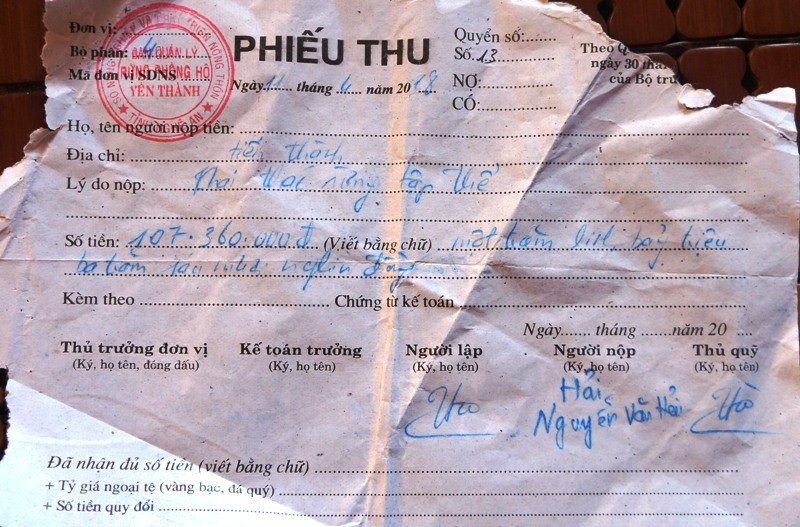 Đơn vị:
Bộ phận:
Mã đơn vị SDNS
BAN QUẢN LÝ
RỪNG PHÒNG HỘ
YÊN THÀNH
TỈNH NGHỆ AN
PHIẾU THU
Ngày 11 tháng 4 năm 2018
Quyển số:
Số 13
NỢ:
CÓ:
Theo
ngày 30
của Bộ
Họ, tên người nộp tiền:
Địa chỉ: Tiến Thành
Lý do nộp: Khai thác rừng tập thể
Số tiền: 107.360.000đ (Viết bằng chữ) một trăm linh bảy triệu
ba trăm sáu mươi nghìn đồng
Kèm theo Chứng từ kế toán
Ngày tháng năm 20
Thủ trưởng đơn vị Kế toán trưởng Người lập Người nộp Thủ quỹ
(Ký, họ tên, đóng dấu) (Ký, họ tên) (Ký, họ tên) (Ký, họ tên) (Ký, họ tên)
Hải
Nguyễn Văn Hải
Đã nhận đủ số tiền (viết bằng chữ)
+ Tỷ giá ngoại tệ (vàng bạc, đá quý)
+ Số tiền quy đổi